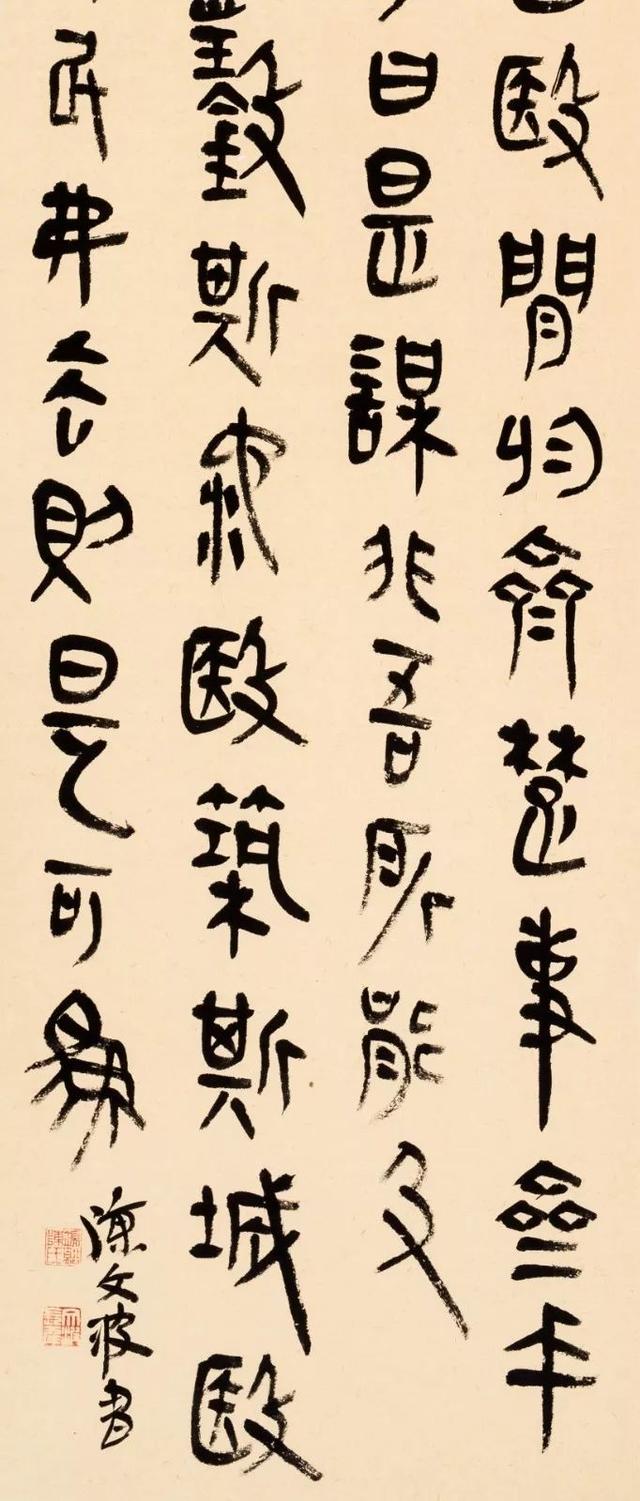 殹閒於齊楚事齊=乎
曰是謀非吾所能及
鑿斯池殹築斯城殹
民弗去則是可為
陳文波書